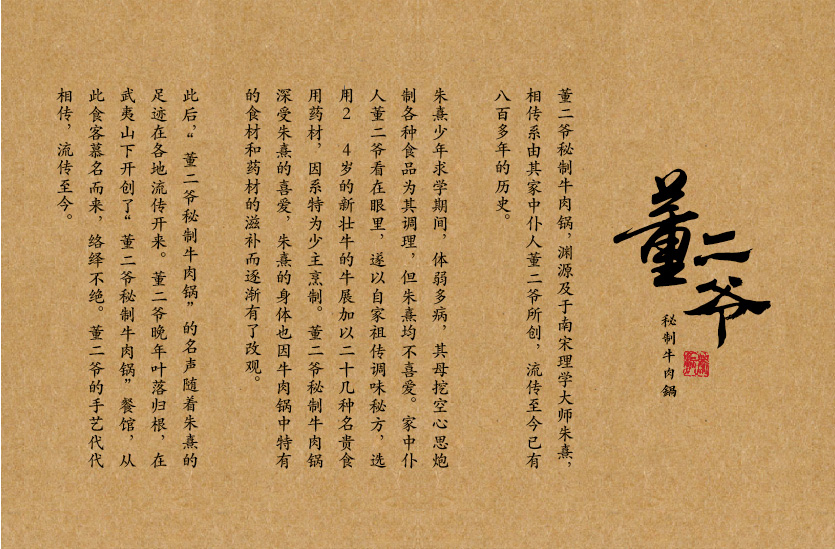 董二爷
秘制牛肉鍋
董二爷秘制牛肉锅，渊源及于南宋理学大师朱熹，
相传系由其家中仆人董二爷所创，流传至今已有
八百多年的历史。
朱熹少年求学期间，体弱多病，其母挖空心思炮
制各种食品为其调理，但朱熹均不喜爱。家中仆
人董二爷看在眼里，遂以自家祖传调味秘方，选
用2 4岁的新壮牛的牛展加以二十几种名贵食
用药材，因系特为少主烹制。董二爷秘制牛肉锅
深受朱熹的喜爱，朱熹的身体也因牛肉锅中特有
的食材和药材的滋补而逐渐有了改观。
此后，“董二爷秘制牛肉锅”的名声随着朱熹的
足迹在各地流传开来。董二爷晚年叶落归根，在
武夷山下开创了“董二爷秘制牛肉锅”餐馆，从
此食客慕名而来，络绎不绝。董二爷的手艺代代
相传，流传至今。